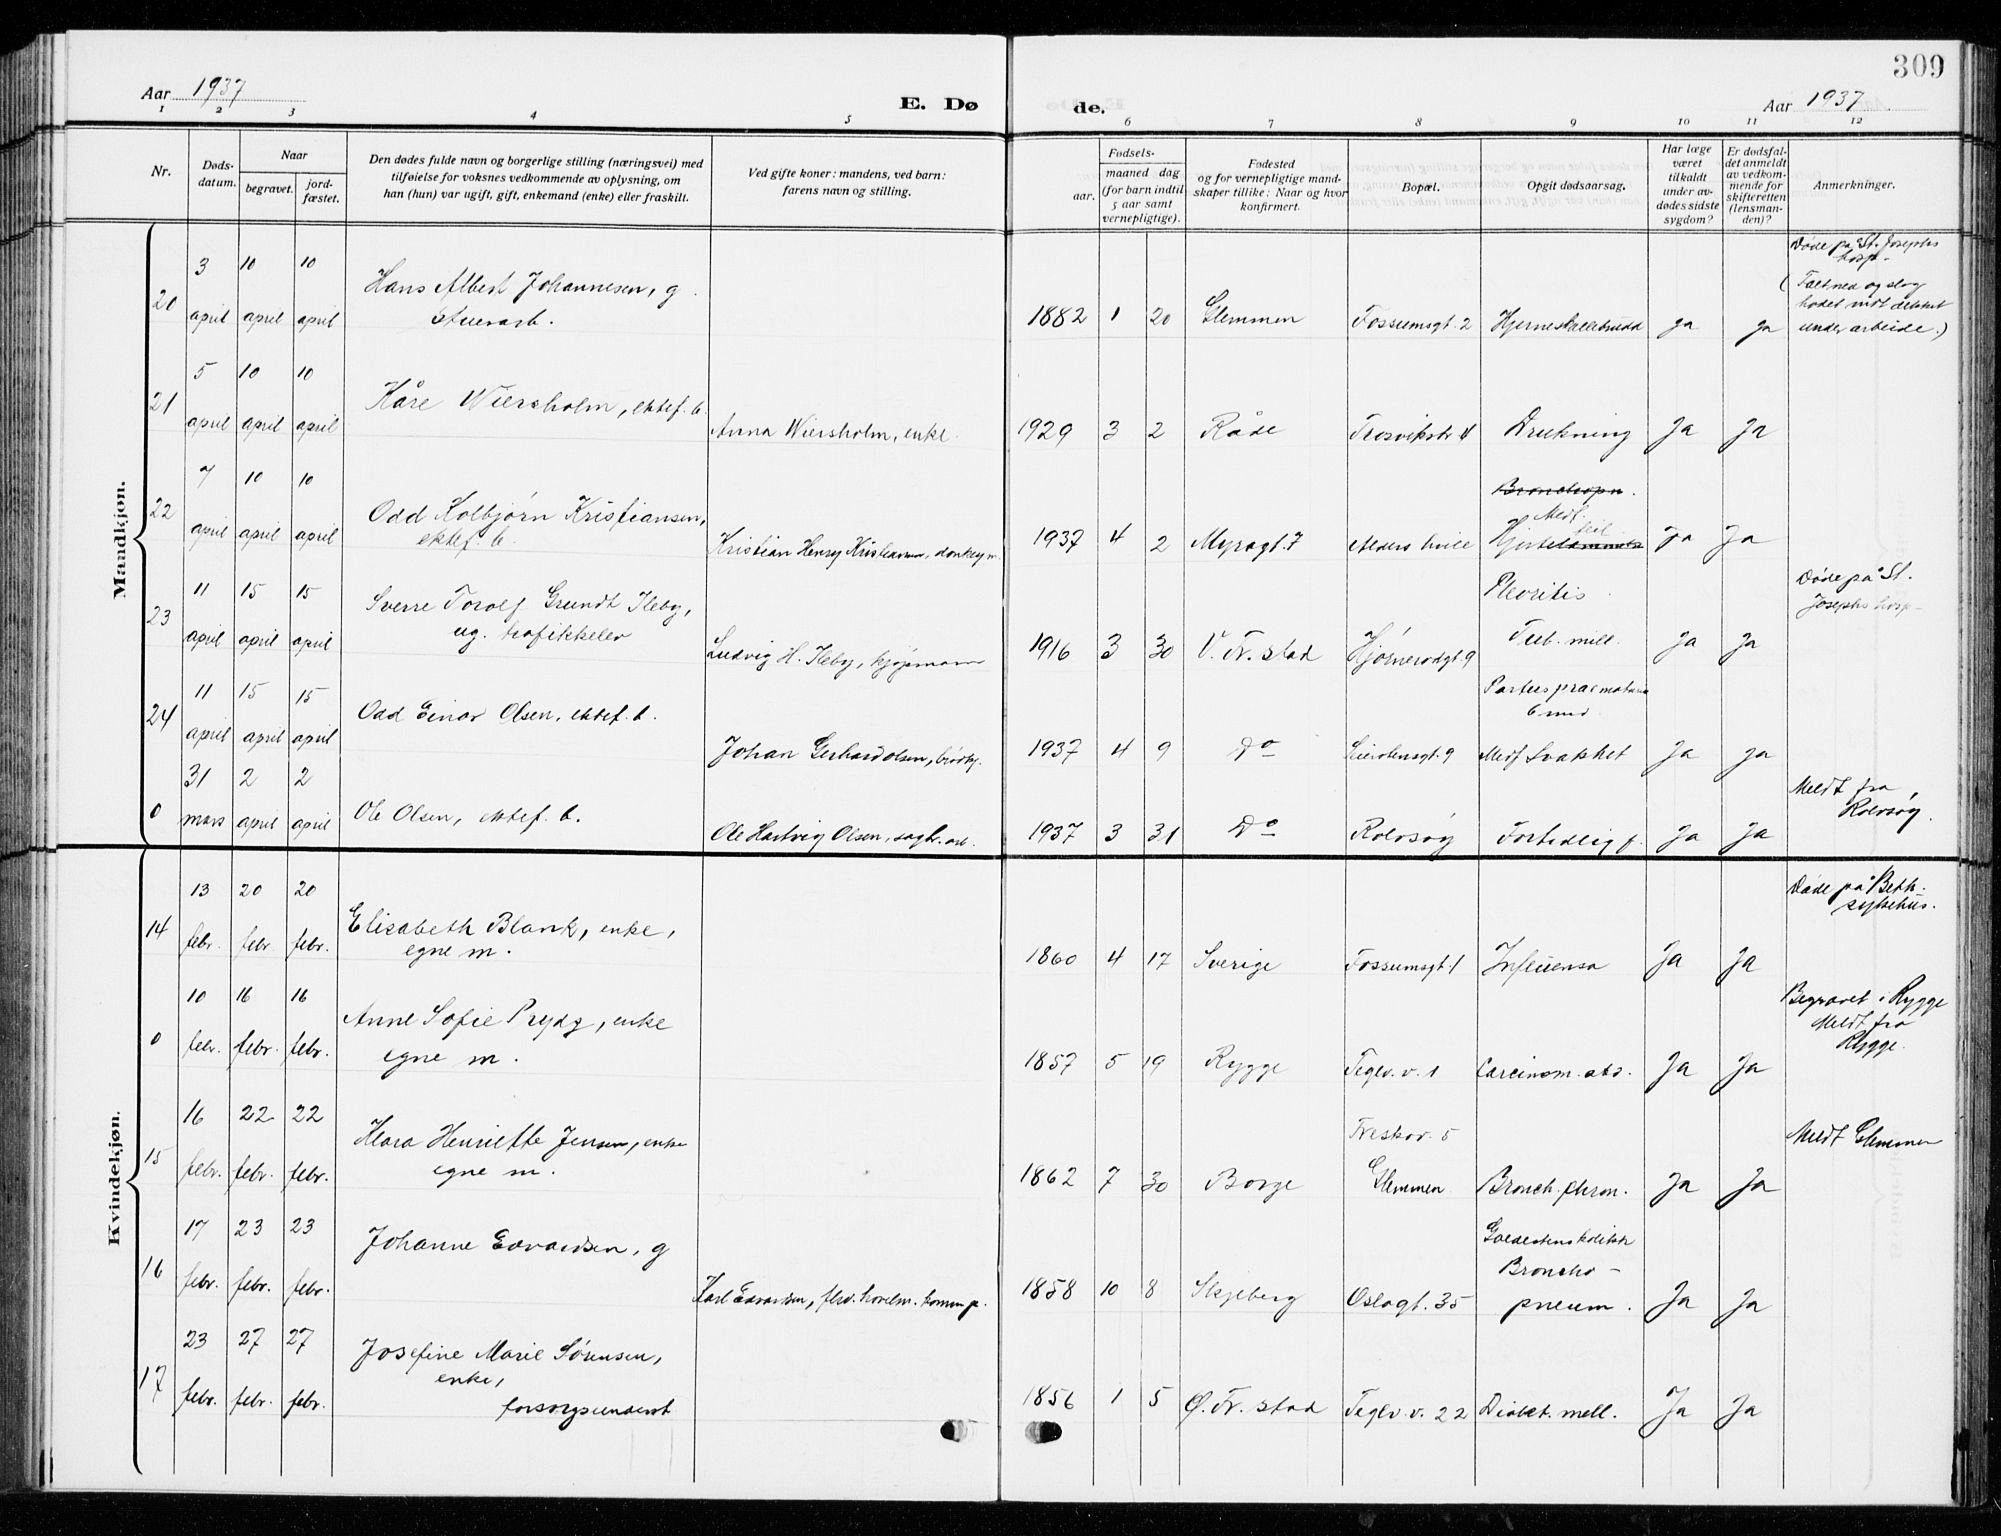 309
Aar 1937
E. Dø
de.
Aar 1937
1 2 3 4 5 6 7 8 9 10 11 12
Nr.
Døds-
datum.
Naar
begravet.
jord-
fæstet.
Den dødes fulde navn og borgerlige stilling (næringsvei) med
tilføielse for voksnes vedkommende av oplysning, om
han (hun) var ugift, gift, enkemand (enke) eller fraskilt.
Ved gifte koner: mandens, ved barn:
farens navn og stilling.
Fødsels-
aar.
maaned dag
(for barn indtil
5 aar samt
vernepligtige).
Fødested
og for vernepligtige mand-
skaper tillike: Naar og hvor
konfirmert.
Bopæl.
Opgit dødsaarsag.
Har læge
været
tilkaldt
under av-
dødes sidste
sygdom?
Er dødsfal-
det anmeldt
av vedkom-
mende for
skifteretten
(lensman-
den)?
Anmerkninger.
Mandkjøn.
20
3 april
10 april
10 april
Hans Albert Johannesen, g.
stuerarb.
1882 1 20
Glemmen
Fossumsgt. 2
Hjerneskallebrudd
ja
ja
Døde på St. Josephs
hosp.
(Falt ned og slog
hodet mot dekket
under arbeide.)
21
5 april
10 april
10 april
Kåre Wiersholm, ektef. b.
Anna Wiersholm, enke.
1929 3 2
Råde
Trosvikstr 4
Drukning
Ja
Ja
22
7 april
10 april
10 april
Odd Kolbjørn Kristiansen,
ektef. b.
Kristian Henry Kristiansen, donkeym.
1937 4 2
Myragt. 7
Alders hvile
Bronchopn.
Medf.
Hjerte feil
Ja
Ja
23
11 april
15 april
15 april
Sverre Torolf Grundt Ileby,
ug. trafikkelev
Ludvig H. Ileby, kjøpmann
1916 3 30
V. Fr.stad
Hjørnerødgt. 9
Pleuritis
Tub. mill.
Ja
Ja
Døde på St.
Josephs hosp.
24
11 april
15 april
15 april
Odd Einar Olsen, ektef. b.
Johan Gerhard Olsen, brødkj.
1937 4 9
Do
Seierstensgt. 9
Partus praematurus
6 mnd.
Medf Svakhet
Ja
Ja
0
31 mars
2 april
2 april
Ole Olsen, ektef. b.
Ole Hartvig Olsen, sagbr. arb.
1937 3 31
Do
Rolvsøy
Fortidlig f.
Ja
Ja
Meldt fra
Rolvsøy.
Kvindekjøn.
14
13 febr.
20 febr
20 febr.
Elisabeth Blank, enke,
egne m.
1860 4 17
Sverige
Fossumsgt. 1
Influensa
Ja
Ja
Døde på Beth.
sykehus.
0
10 febr.
16 febr.
16 febr.
Anne Sofie Prydz, enke
egne m.
1857 5 19
Rygge
Teglv. v. 1
Carcinom. abd.
Ja
Ja
Begravet i Rygge
Meldt fra
Rygge.
15
16 febr.
22 febr.
22 febr.
Klara Henriette Jensen, enke
egne m.
1862 7 30
Borge
Treskov. 5
Glemmen
Bronch. chron.
Ja
Ja
Meldt Glemmen
16
17 febr.
23 febr.
23 febr.
Johanne Edvardsen, g
Karl Edvardsen, komm p.
1858 10 8
Skjeberg
Oslogt. 35
Galdestenskolikk
Broncho-
pneum.
Ja
Ja
17
23 febr.
27 febr.
27 febr.
Josefine Marie Sørensen,
enke,
forsorgsunderst
1856 1 5
Ø. Fr. stad
Teglv. v. 22
Diabet. mell.
Ja
Ja